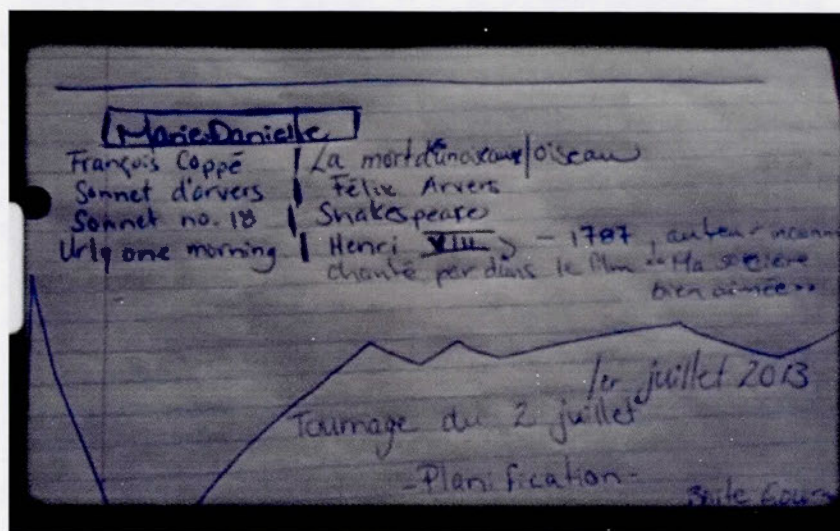 Marie Danielle
François Coppé | La mort d'un oiseau
Sonnet d'arvers | Félix Arvers
Sonnet no. 18 | Shakespeare
Urly one morning | Henri VIII - 1787, auteur inconnu
chanté par dans le film "Ma sorcière
bien aimée"
1er juillet 2013
Tournage du 2 juillet
-Planification-